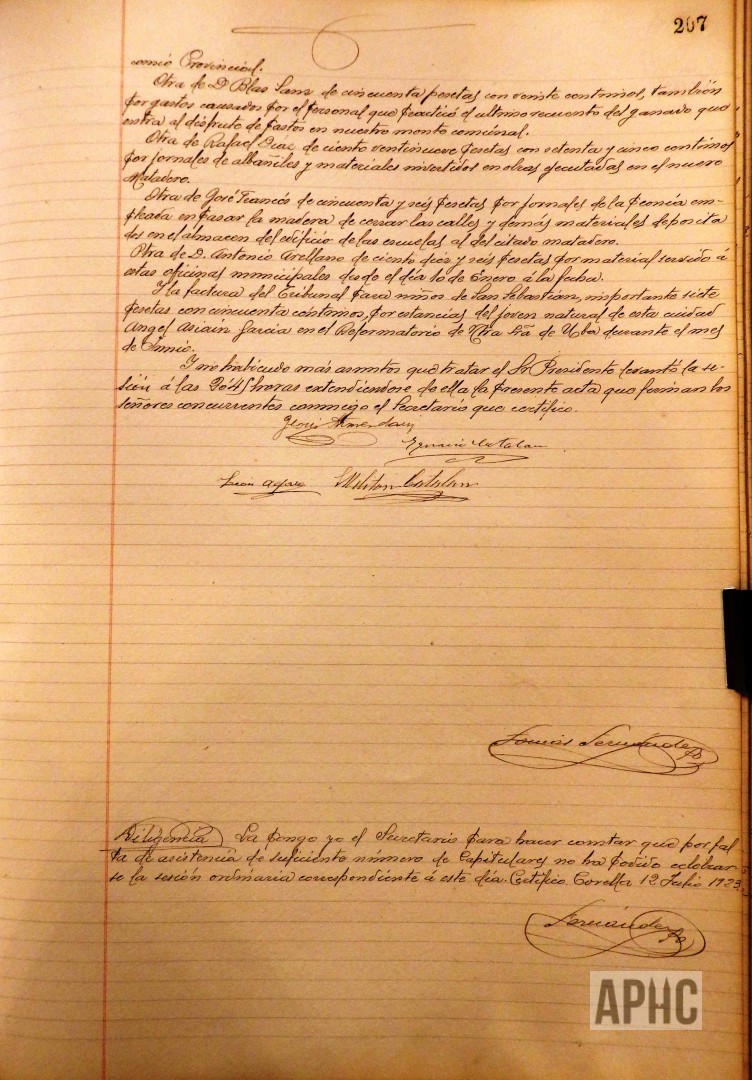 207
comió Provincial.
Otra de D. Blas Sanz de cincuenta pesetas con veinte centimos, tambión
por gastos causados por el personal que practicó el ultimo recuento del ganado que
entra al disfrute de pastos en nuestro monte comunal.
Otra de Rafael Diaz de ciento veintinueve pesetas con setenta y cinco centimos
por jornales de albañiles y materiales invertidos en obras ejecutadas en el nuevo
Matadero.
Otra de José Francés de cincuenta y seis pesetas por jornales de la peonía em-
pleada en pasar la madera de cerrar las calles y demás materiales deposita
dos en el almacen del edificio de las escuelas al del citado matadero.
Otra de D. Antonio Arellano de ciento diez y seis pesetas por material servido á
estas oficinas municipales desde el día 1o de Enero á la fecha.
Y la factura del Tribunal para niños de San Sebastián, importante siete
pesetas con cincuenta centimos, por estancias del joven natural de esta ciudad
Angel Asiain Garcia en el Reformatorio de Ntra Sra de Uba durante el mes
de Junio.
Y no habiendo más asuntos que tratar el Sr Presidente levantó la se-
sión á las 20'45 horas extendiendose de ella la presente acta que firman los
señores concurrentes conmigo el Secretario que certifico.
Amendaiz
Ignacio Catalan
León Meliton Catalan
Tomás Fernández
Diligencia La pongo yo el Secretario para hacer constar que por fal
ta de asistencia de suficiente número de Capitulares no ha podido celebrar
se la sesión ordinaria correspondiente á este día. Certifico. Corella 12 Julio 1923.
Fernández
APHC